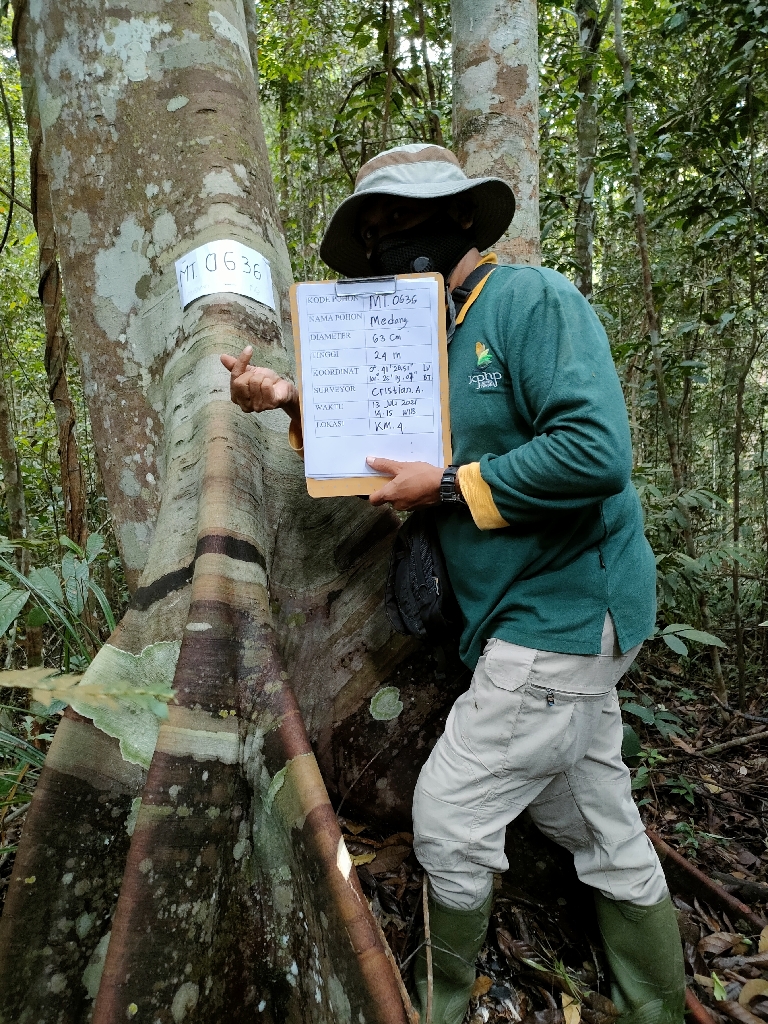 MT. 0636
KODE POHON MT. 0636
NAMA POHON Medang
DIAMETER 63 Cm
TINGGI 24 m
KOORDINAT
SURVEYOR Cristian. A.
WAKTU 13 Juli 2021
14.15 WIB
LOKASI KM. 4
kphp